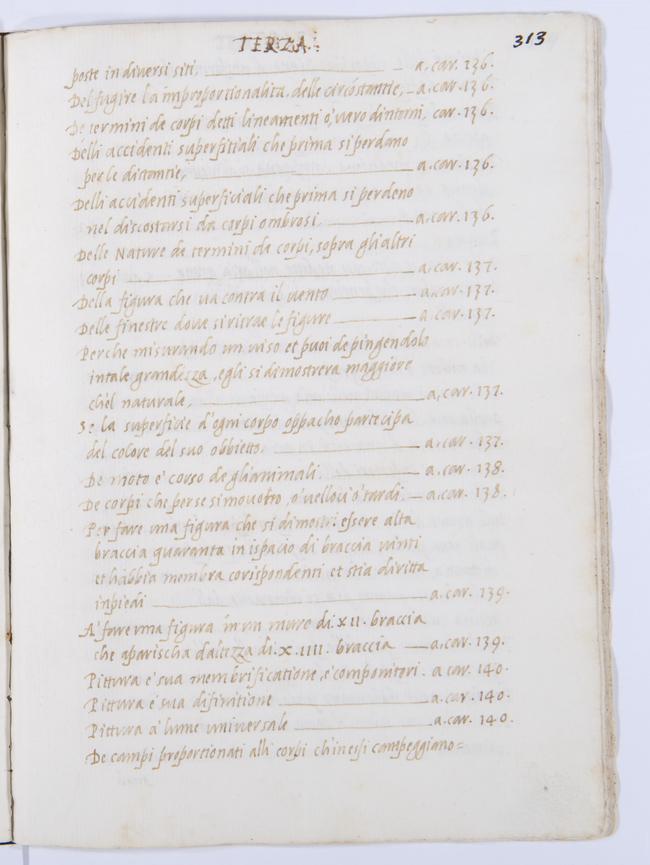 TERZA.
313
poste in diversi siti, a. car. 136.
Del fugire la improportionalita, delle circõstantie, a. car. 136.
De termini de corpi detti lineamenti o, vero dintorni, car. 136.
Delli accidenti superfitiali che prima si perdano
per le distantie, a. car. 136.
Delli accidenti superficiali che prima si perdeno
nel discostarsi da corpi ombrosi, a. car. 136.
Delle Nature de termini de corpi, sopra gli altri
corpi a. car. 137.
Della figura che va contra il vento a. car. 137.
Delle finestre dove si ritrae le figure a. car. 137.
Perche misurando un viso et puoi depingendolo
in tale grandezza, egli si dimostrera maggiore
ch'el naturale, a, car. 137.
Se la superficie d'ogni corpo oppacho partecipa
del colore del suo obbietto. a. car. 137.
De moto e' corso de gli animali. a. car. 138.
De corpi che per se si movono, o' velloci o' tardi. a. car. 138.
Per fare una figura che si dimostri essere alta
braccia quaranta in ispacio di braccia vinti
et habbia membra corispondenti et stia diritta
in piedi a. car. 139.
A' fare una figura in un muro di. XII. braccia
che aparischa d'altezza di. X. IIII. braccia a. car. 139.
Pittura e' sua membrificatione, e' componitori. a car. 140.
Pittura e' sua difinitione a. car. 140.
Pittura a' lume universale a. car. 140.
De campi proportionati alli corpi ch'inessi campeggiano=